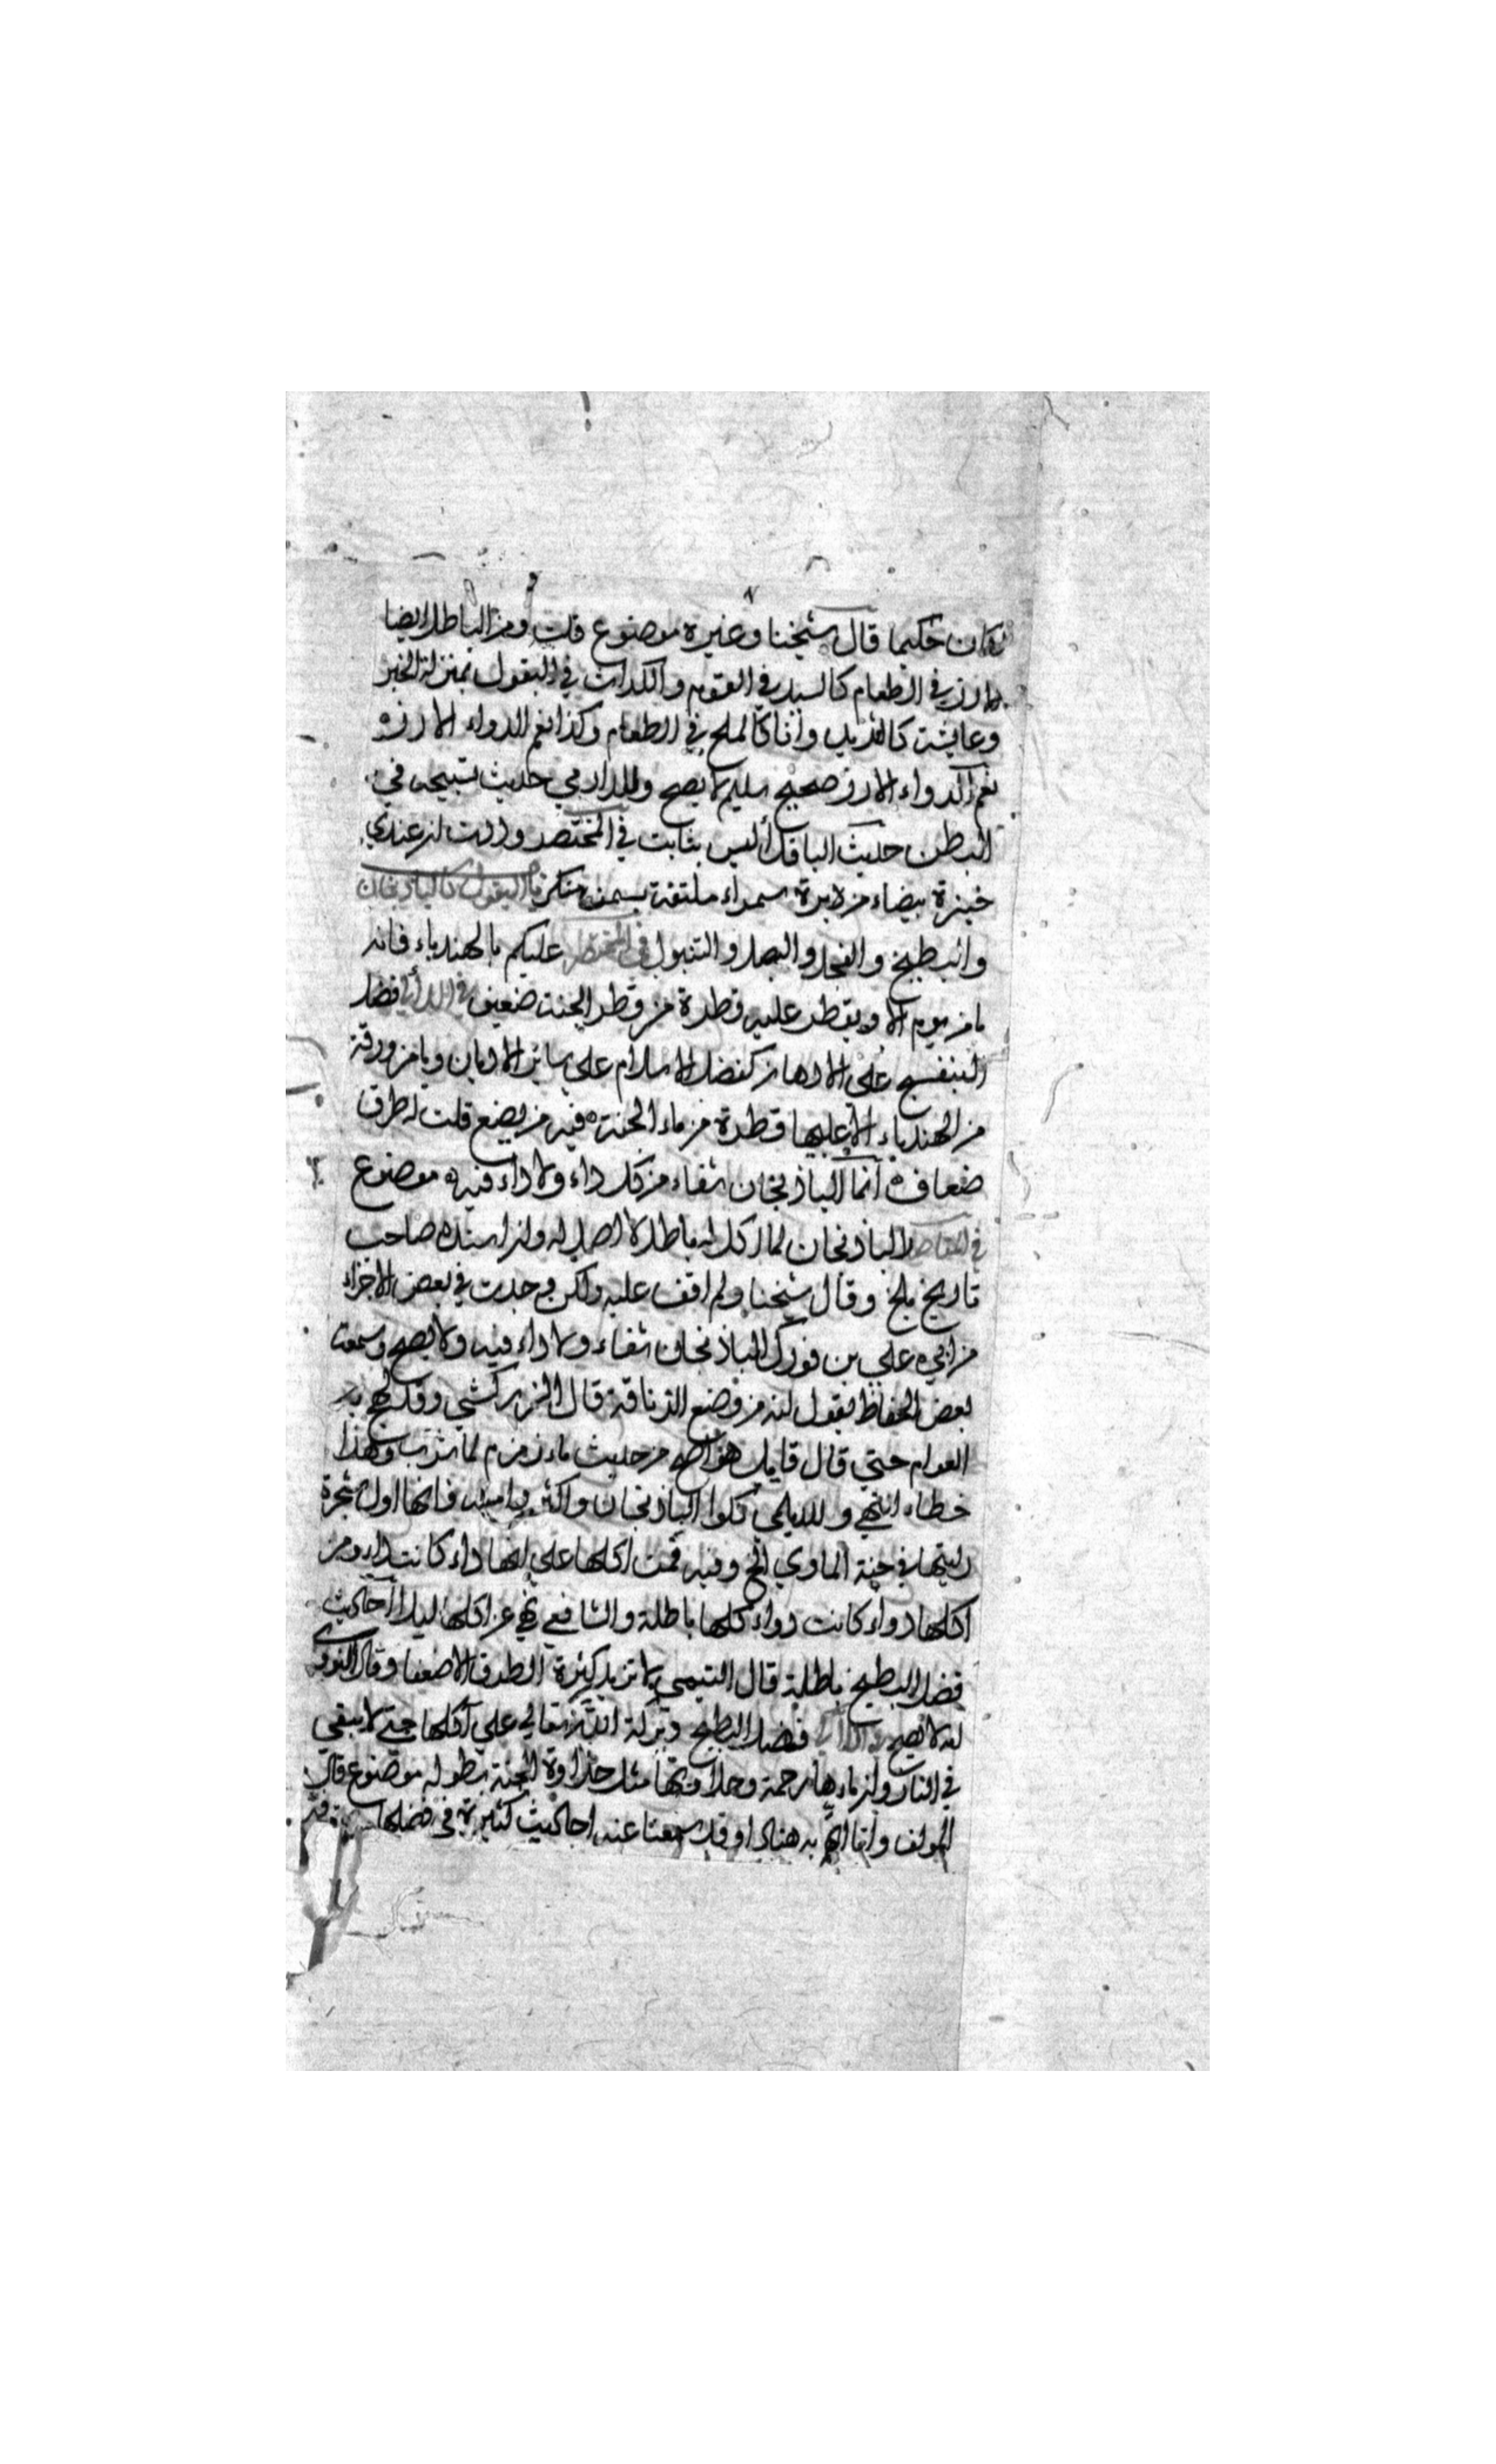 لكان حكيما قال شيخنا وغيره موضوع قلت ومن الباطل ايضا
الارز في الطعام كالسيد في القوم والكراث في البقول بمنزلة الخبز
وعايشة كالثريد وانا كالملح في الطعام وكذا نعم الدواء الارزه
نعم الدواء الارز صحيح سليم لا يصح وللدارمي حديث تسبيحه في
البطن حديث الباقلا ليس بثابت في المختصر وددت لو عندي
خبزة بيضاء من برة سمراء ملتقة بسمن منكر باب البقول كالباذنجان
والبطيخ والفجل والبصل والتنبول في المختصر عليكم بالهندباء فانه
ما من يوم الا ويقطر عليه قطرة من قطر الجنة ضعيف في اللآلي فضل
البنفسج على الادهان كفضل الاسلام على ساير الاديان وما من ورقة
من الهندباء الا عليها قطرة من ماء الجنة ه فيه من يضع قلت له طرق
ضعاف ه انما الباذنجان شفاء من كل داء ولا داء فيه ه موضوع
في المقاصد الباذنجان لما اكل له باطل لا اصل له وان اسنده صاحب
تاريخ بلخ وقال شيخنا ولم اقف عليه ولكن وجدت في بعض الاجزاء
من ابي علي بن فورك الباذنجان شفاء ولا داء فيه ولا يصح وسمعت
بعض الحفاظ يقول انه من وضع الزنادقة قال الزركشي وقد لهج به
العوام حتي قال قايل هو اصح من حديث ماء زمزم لما شرب وهذا
خطاء انتهي وللديلمي كلوا الباذنجان واكثروا منه فانها اول شجرة
رايتها في جنة الماوي الخ وفيه فمن اكلها علي انها داء كانت داء ومن
اكلها دواء كانت دواء كلها باطلة والشافعي نهي عن اكلها ليلا احاديث
فضل البطيخ باطلة قال التيمي لا تزيد كثرة الطرق الا ضعفا وقال النووي
انه لا يصح في اللآلي فضل البطيخ وبركة الله تعالي علي آكلها حتي لا يبقي
في النار وان ماءها رحمة وحلاوتها مثل حلاوة الجنة بطوله موضوع قال
المولف وانا اتهم به هنادا وقد سمعنا عنه احاديث كثيرة في فضلها